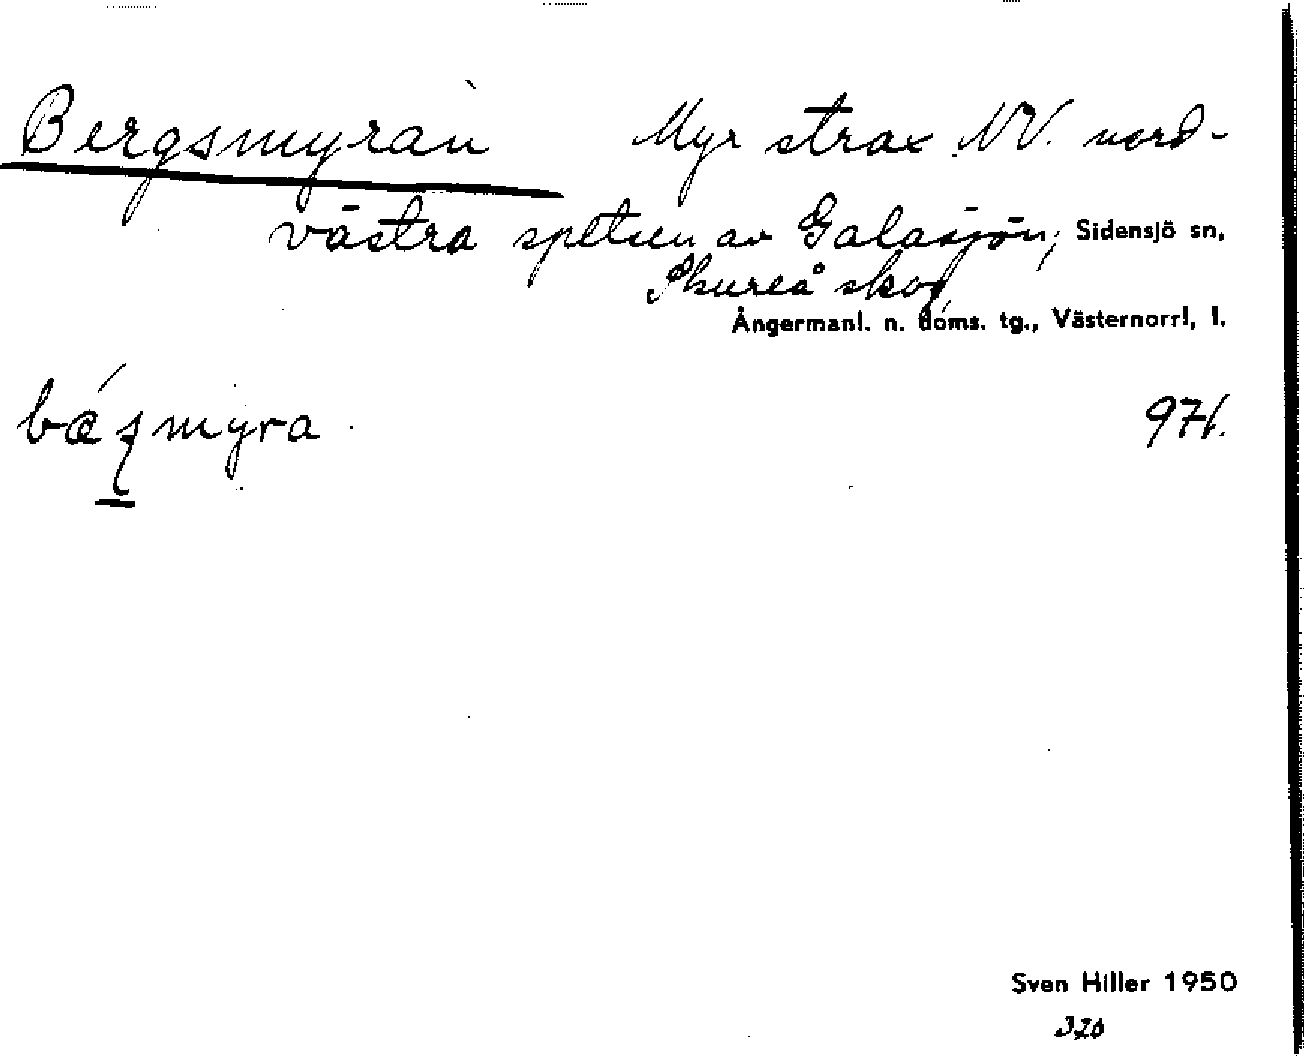 Bergsmyran Myr strax NV. nord-
västra spetsen av Galasjön; Sidensjö sn,
Skureå skog
Ångermanl. n. doms. tg., Västernorrl, l.
971.
Sven Hiller 1950
320